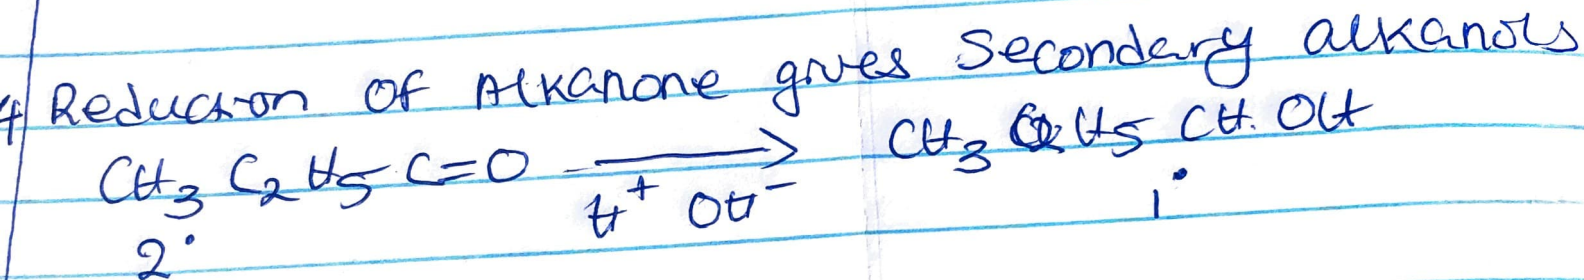 4 Reduction of Alkanone gives Secondary alkanols
CH₃ C₂H₅ C=O ⟶ CH₃ C₂H₅ CH.OH
H⁺ OH⁻
2° 1°